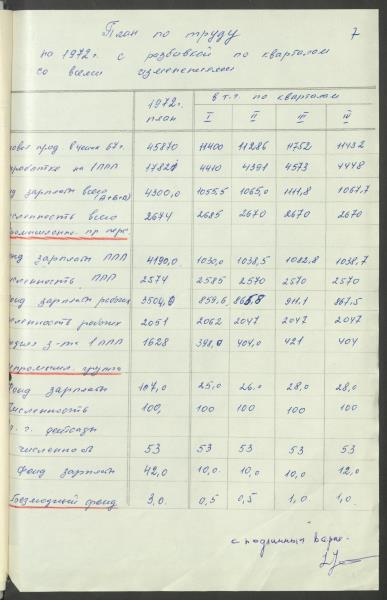 План по труду 7
на 1972г. с разбивкой по кварталам
со всеми изменениями
1972г. в т.ч. по кварталам
план I II III IV
45870 11400 11286 11752 11432
на 1 ППП 17821 4410 4391 4573 4448
зарплаты всего (А+Б+В) 4300,0 1055,5 1065,0 1111,8 1067,7
всего 2674 2685 2670 2670 2670
зарплаты ППП 4190,0 1030,0 1038,5 1082,8 1038,7
ППП 2574 2585 2570 2570 2570
зарплаты рабочих 3504,0 859,6 865,8 911,1 867,5
рабочих 2051 2062 2047 2047 2047
з-та 1 ППП 1628 398,0 404,0 421 404
группа
Фонд зарплаты 107,0 25,0 26,0 28,0 28,0
Численность 100, 100 100 100 100
детсады
численность 53 53 53 53 53
Фонд зарплаты 42,0 10,0 10,0 10,0 12,0
Безлюдный фонд 3,0 0,5 0,5 1,0 1,0
с подлинным верно.